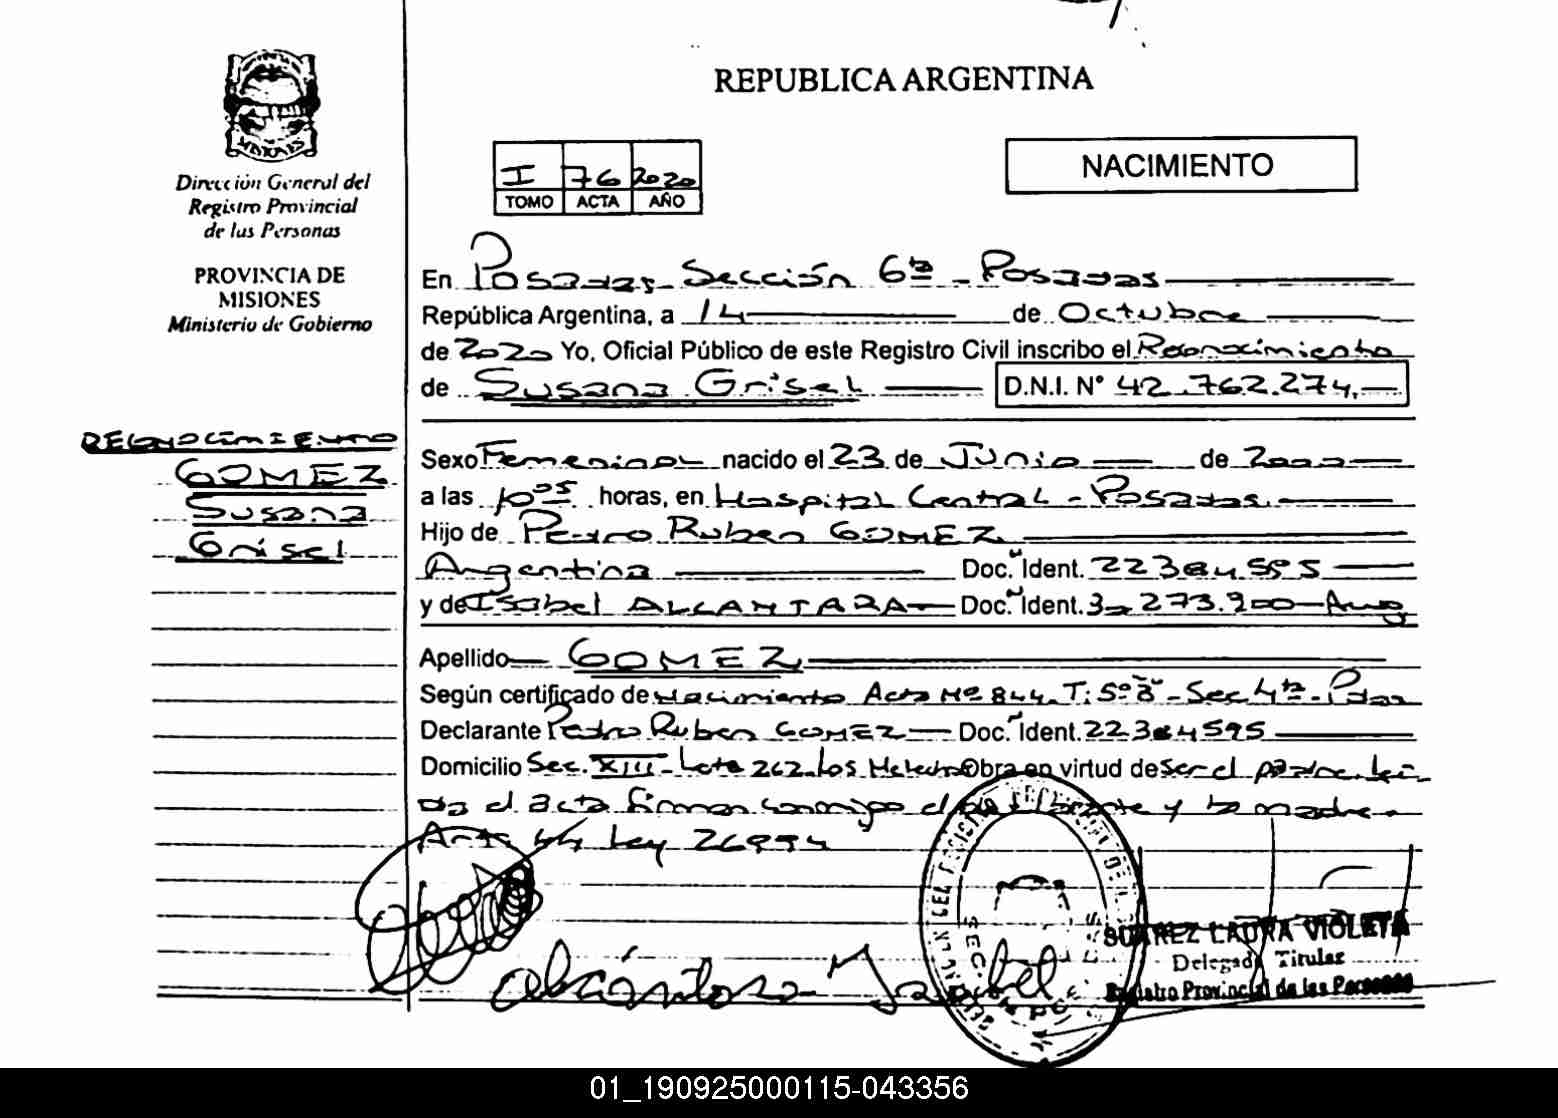 REPUBLICA ARGENTINA
MISIONES
Dirección General del
Registro Provincial
de las Personas
PROVINCIA DE
MISIONES
Ministerio de Gobierno
I 76 2020
TOMO ACTA AÑO
NACIMIENTO
En Posadas Sección 6ta - Posadas
República Argentina, a 14 de Octubre
de 2020 Yo, Oficial Público de este Registro Civil inscribo el Reconocimiento
de Susana Grisel D.N.I. N° 42.762.274.
RECONOCIMIENTO
GOMEZ
Susana
Grisel
Sexo Femenino nacido el 23 de Junio de 2000
a las 10:05 horas, en Hospital Central - Posadas
Hijo de Pedro Ruben GOMEZ
Argentina Doc. Ident. 22384595
y de Isabel ALCANTARA Doc. Ident. 273.900 - Arg
Apellido GOMEZ
Según certificado de Nacimiento Acta Nº 844 T: 5º B - Sec 4ta - Pdas
Declarante Pedro Ruben GOMEZ Doc. Ident. 22384595
Domicilio Sec. XIII - Lote 262 Los Obra en virtud de ser el padre. Leí-
da el acta firman conmigo el declarante y la madre.
Art. 44 Ley 26994
Alcántara Isabel
SUAREZ LAURA VIOLETA
Delegada Titular
Registro Provincial de las Personas
01_190925000115-043356